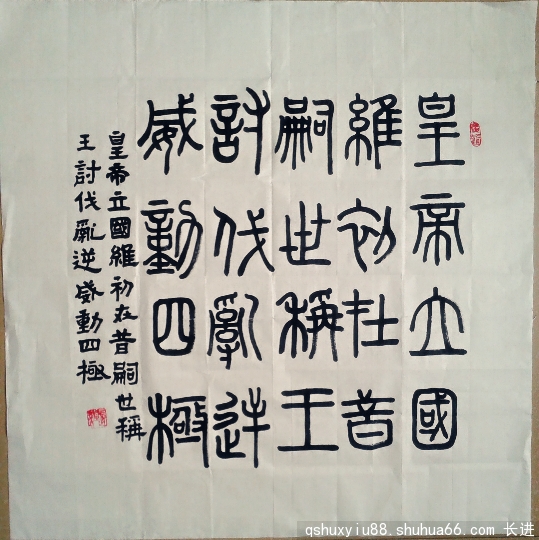 皇帝立國
維初在昔
嗣世稱王
討伐亂逆
威動四極
皇帝立國維初在昔嗣世稱
王討伐亂逆威動四極
qshuxyiu88.shuhua66.com 长进